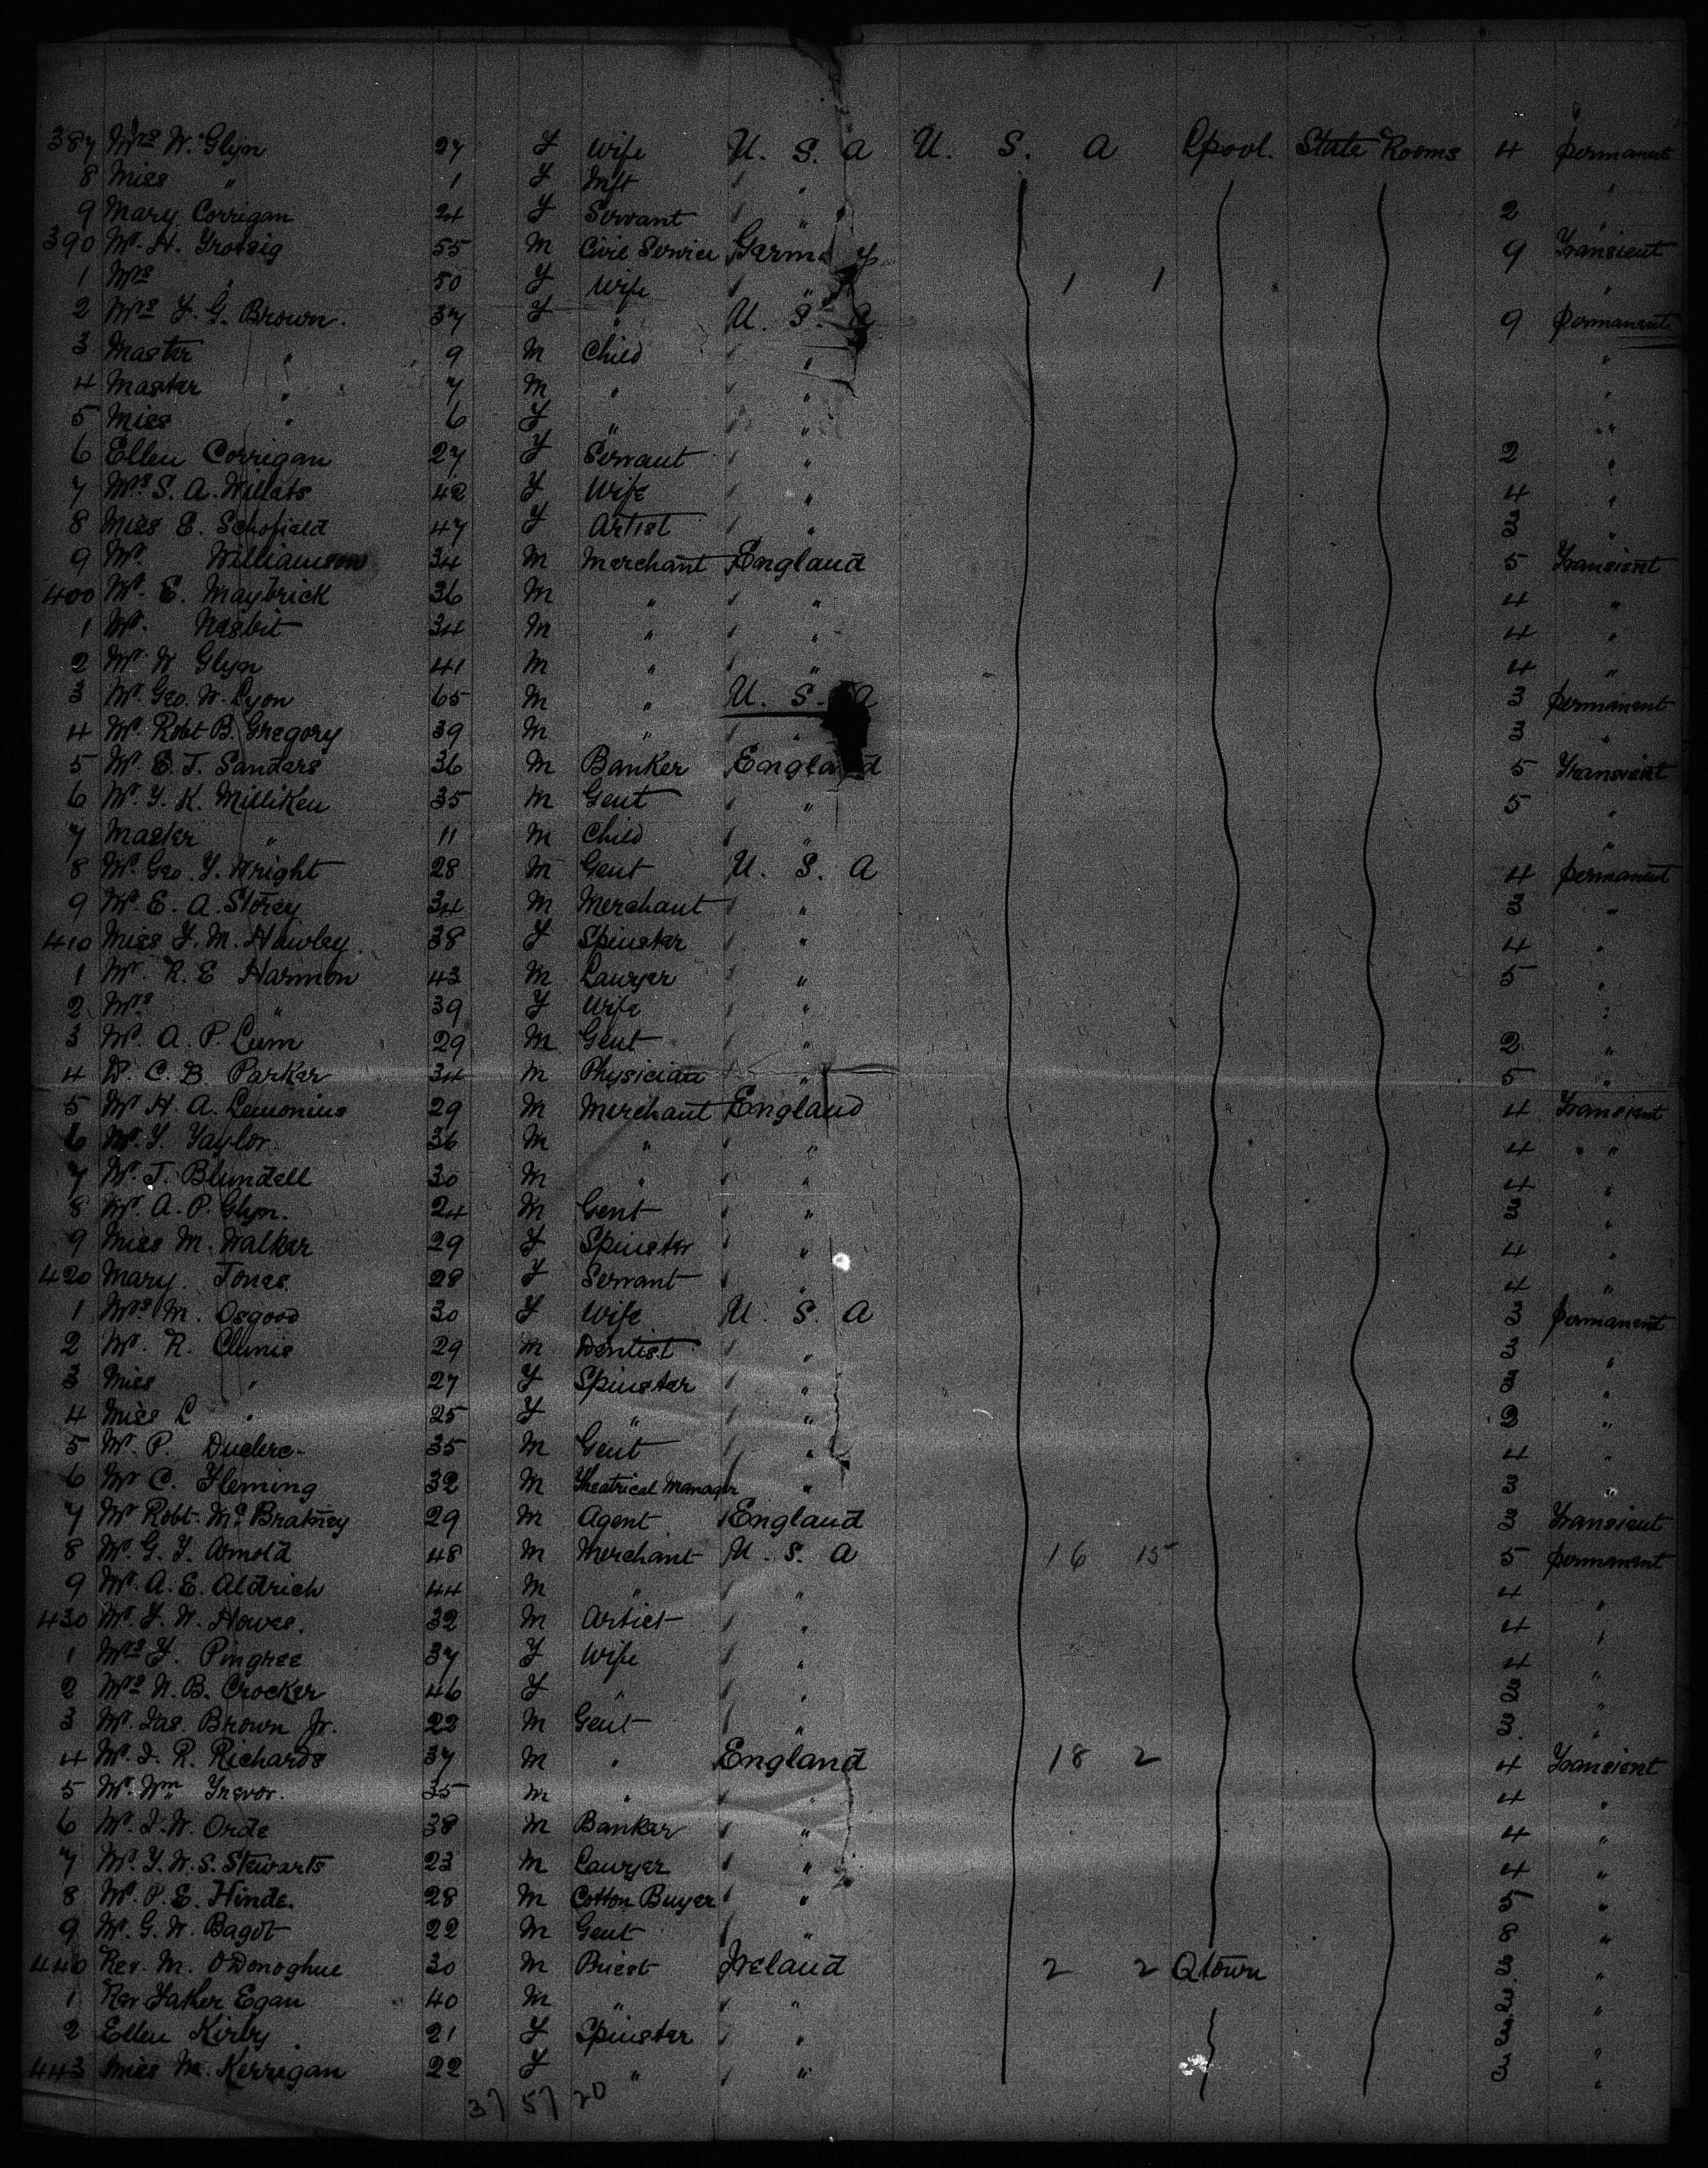 387 Mrs W. Glyn 27 F Wife U. S. A U. S. A Lpool. State Rooms 4 permanent
8 Miss " 1 F Inft " "
9 Mary Corrigan 24 F Servant " " 2 "
390 Mr. H. 55 M Civil Service Germany 9 Transient
1 Mrs " 50 F Wife " 1 1 "
2 Mrs F. G. Brown. 37 F " U. S. A 9 permanent
3 Master " 9 M Child " "
4 Master " 7 M " " "
5 Miss " 6 F " " "
6 Ellen Corrigan 27 F Servant " 2 "
7 Mrs S. A. Willats 42 F Wife " 4 "
8 Miss E. Schofield 47 F Artist " 3 "
9 Mr. Williamson 34 M Merchant England 5 Transient
400 Mr. E. Maybrick 36 M " " 4 "
1 Mr. Nesbit 34 M " " 4 "
2 Mr W Glyn 41 M " " 4 "
3 Mr. Geo. W. Lyon 65 M " U. S. A 3 permanent
4 Mr. Robt B. Gregory 39 M " " 3 "
5 Mr. E. T. Sanders 36 M Banker England 5 Transient
6 Mr. F. K. Milliken 35 M Gent " 5 "
7 Master " 11 M Child " "
8 Mr. Geo. F. Wright 28 M Gent U. S. A 4 permanent
9 Mr. E. A. Storey 34 M Merchant " 3 "
410 Miss F. M. Hawley. 38 F Spinster " 4 "
1 Mr. R. E Harmon 43 M Lawyer " 5 "
2 Mrs " 39 F Wife " "
3 Mr. A. P. Lum 29 M Gent " 2 "
4 Dr. C. B. Parker 34 M Physician " 5 "
5 Mr H. A. Lemonius 29 M Merchant England 4 Transient
6 Mr. F. Taylor. 36 M " " 4 "
7 Mr. J. Blundell 30 M " " 4 "
8 Mr. A. P. Glyn. 24 M Gent " 3 "
9 Miss M. Walker 29 F Spinster " 4 "
420 Mary Jones. 28 F Servant " 4 "
1 Mrs M. Osgood 30 F Wife U. S. A 3 permanent
2 Mr. R. 29 M Dentist " 3 "
3 Miss " 27 F Spinster " 3 "
4 Miss L " 25 F " " 2 "
5 Mr. P. Duclerc 35 M Gent " 4 "
6 Mr C. Fleming 32 M Theatrical Manager " 3 "
7 Mr Robt. 29 M Agent England 3 Transient
8 Mr. G. F. Arnold 48 M Merchant U. S. A 16 15 5 permanent
9 Mr. A. E. Aldrich 44 M " " 4 "
430 Mr. F. W. Howes. 32 M Artist " 4 "
1 Mrs F. Pingree 37 F Wife " 4 "
2 Mrs N. B. Crocker 46 F " " 3 "
3 Mr. Jas. Brown Jr. 22 M Gent " 3 "
4 Mr. J. R. Richards 37 M " England 18 2 4 Transient
5 Mr. Wm Trevor. 35 M " " 4 "
6 Mr. J. W. Orde 38 M Banker " 4 "
7 Mr. F. W. S. Stewarts 23 M Lawyer " 4 "
8 Mr. P. E. Hinde. 28 M Cotton Buyer " 5 "
9 Mr. G. W. Bagot 22 M Gent " 8 "
440 Rev. M. O'Donoghue 30 M Priest Ireland 2 2 Qtown 3 "
1 Rev Father Egan 40 M " " 3 "
2 Ellen Kirby 21 F Spinster " 3
443 Miss M. Kerrigan 22 F " " 3 "
37 57 20